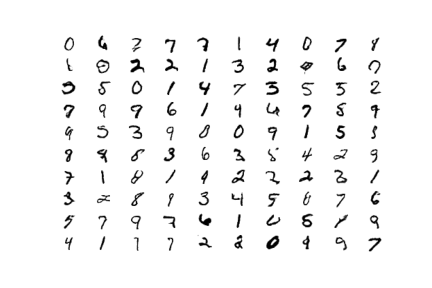 0 6 2 7 7 1 4 0 7 8
1 0 2 2 1 3 2 0 6 0
5 5 0 1 4 7 3 5 5 2
7 9 9 6 1 4 6 7 8 9
9 5 3 9 0 0 9 1 5 8
8 8 8 3 6 3 8 4 2 9
7 1 8 1 9 2 2 2 3 1
3 2 8 9 3 4 5 8 7 6
5 7 9 7 6 1 0 5 1 9
4 1 7 7 2 2 0 9 9 7